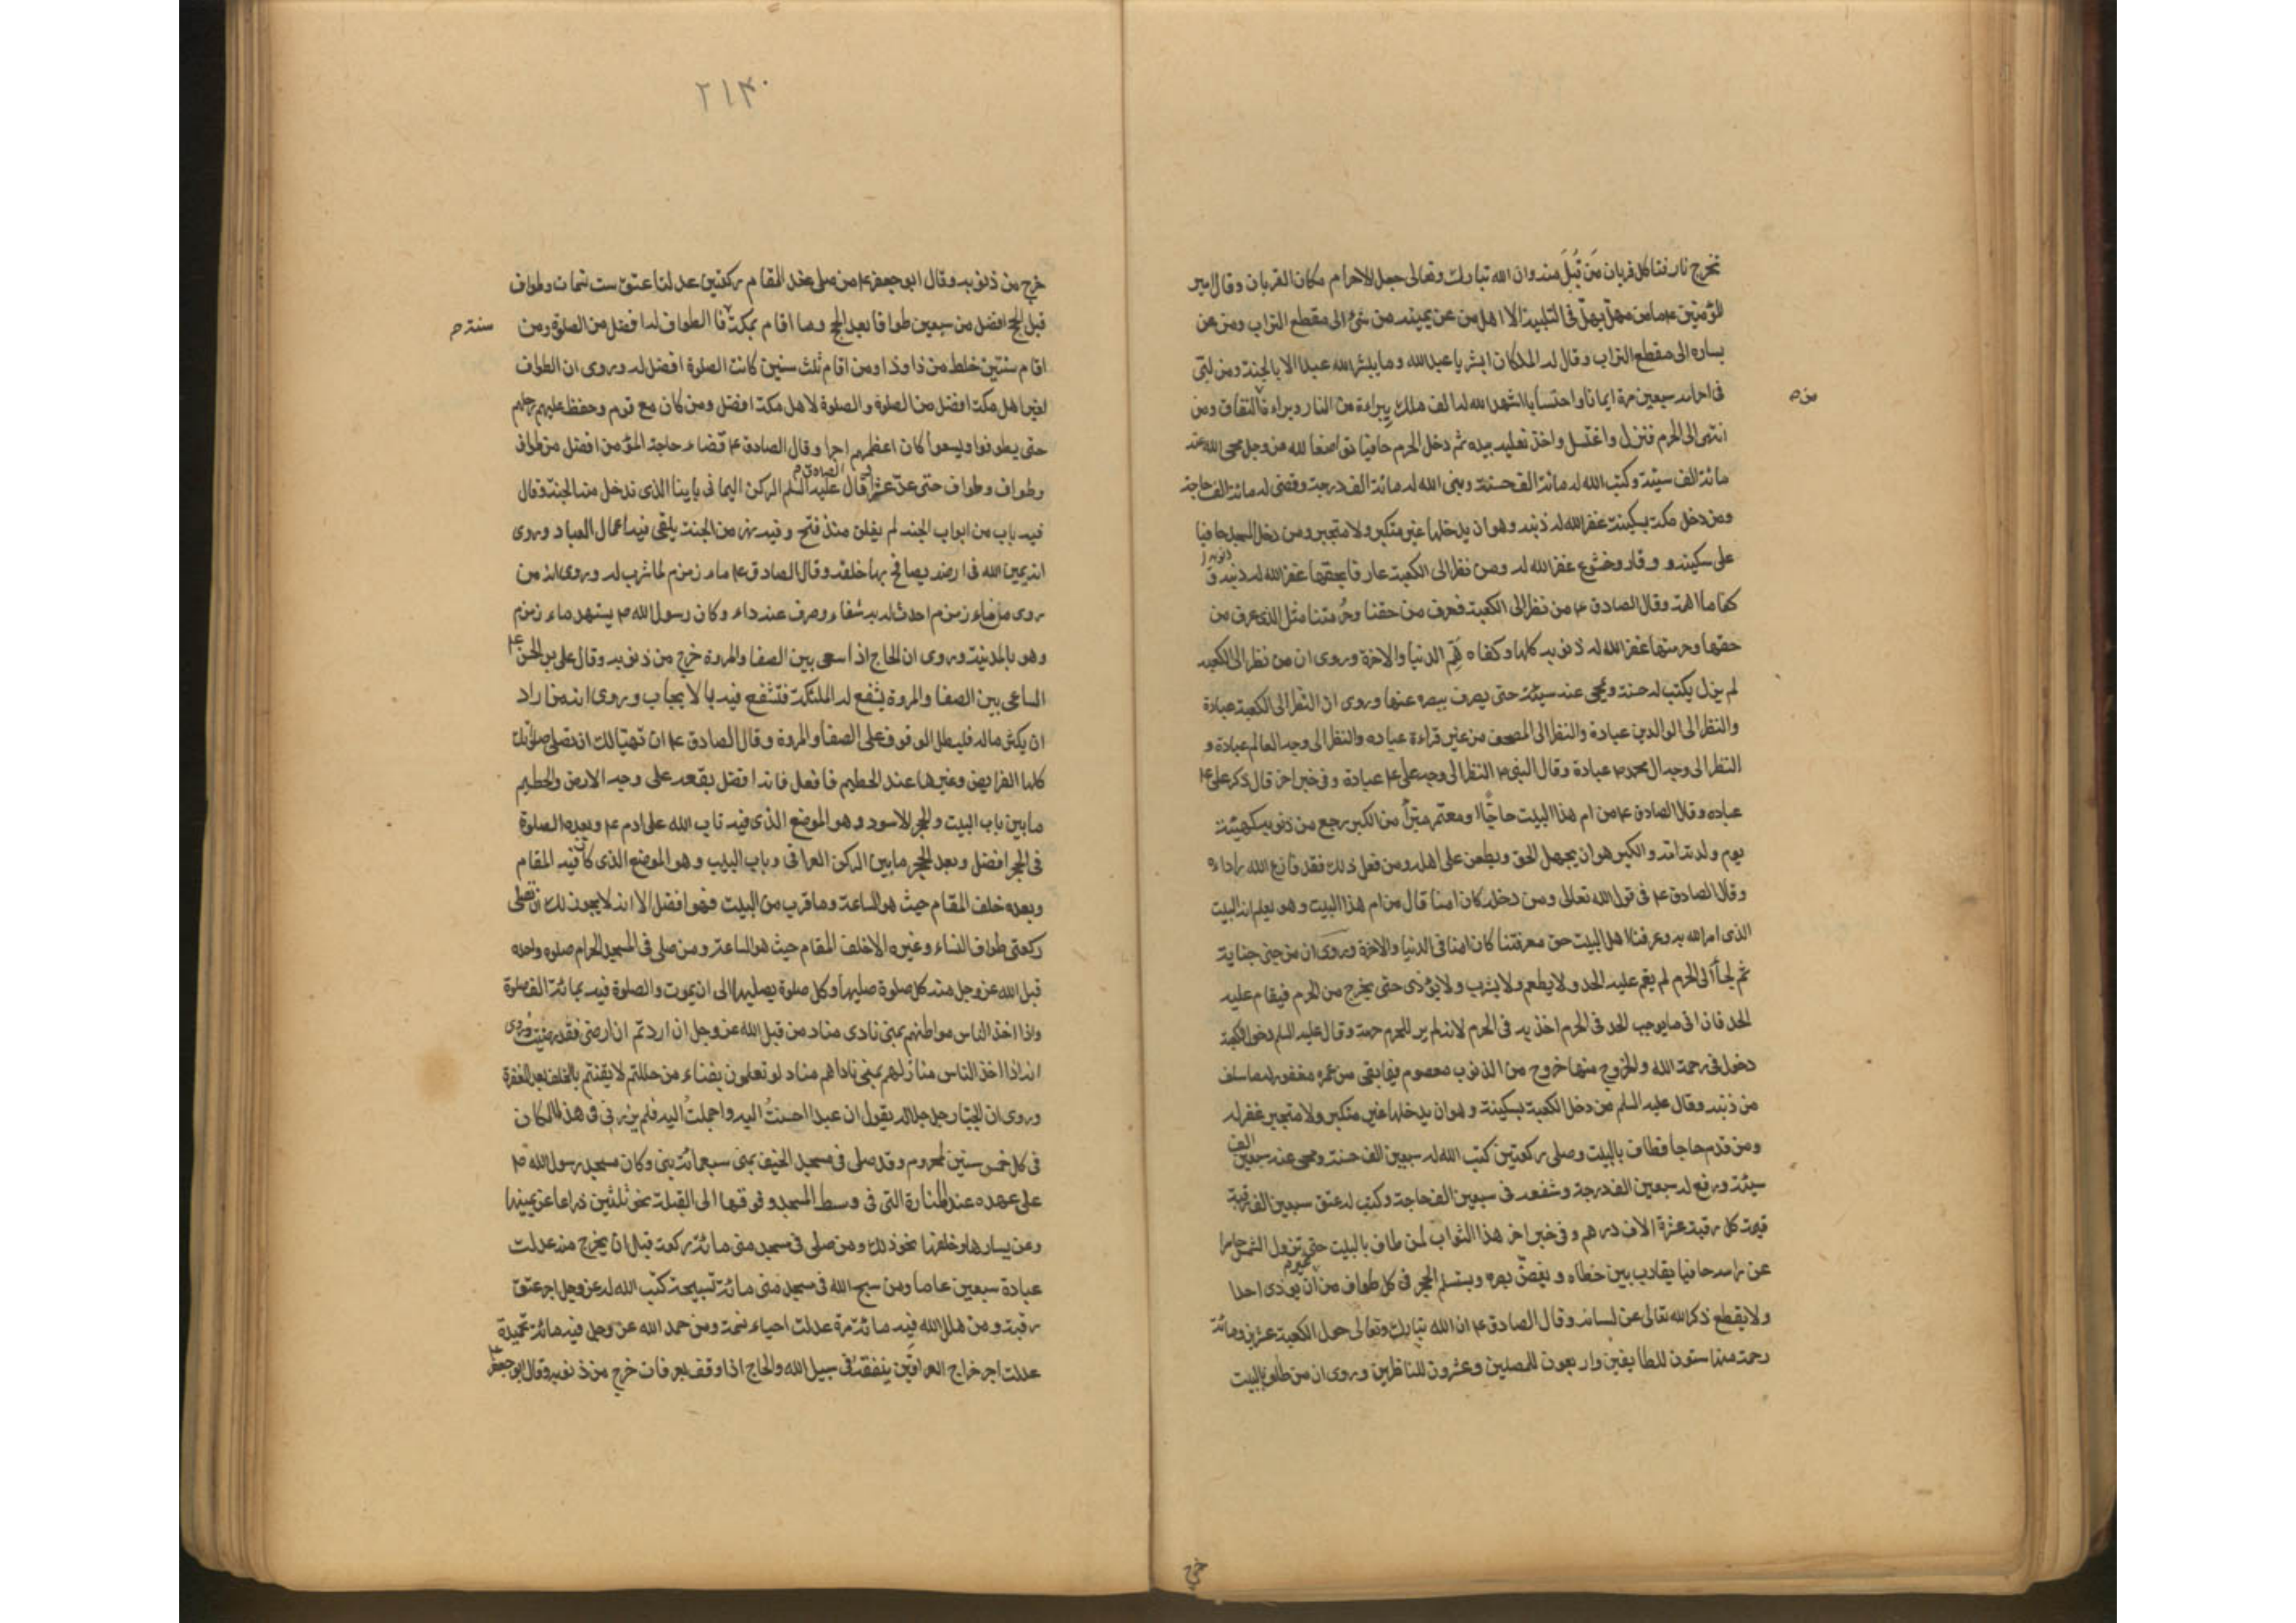 تخرج نار فتاكل قربان مَن قُبِلَ منه وان الله تبارك وتعالى جعل الاحرام مكان القربان وقال امير
المؤمنين ۴ ما من مهلّ يهلّ فى التلبية الا اهل من عن يمينه من شئ الى مقطع التراب ومن عن
يساره الى مقطع التراب وقال له الملكان ابشر يا عبد الله وما يبشر الله عبدا الا بالجنة ومن لبّى
فى احرامه سبعين مرة ايمانا واحتسابا اشهد الله له الف ملك ببراءة من النار وبراءة النفاق ومن
من ص
انتهى الى الحرم فنزل واغتسل واخذ نعليه بيده ثم دخل الحرم حافيا تواضعا لله عز وجل محى الله عنه
مائة الف سيئة وكتب الله له مائة الف حسنة وبنى الله له مائة الف درجة وقضى له مائة الف حاجة
ومن دخل مكة بسكينة غفر الله له ذنبه وهو ان يدخلها غير متكبر ولا متجبر ومن دخل المسجد حافيا
على سكينة و وقار وخشوع غفر الله له ومن نظر الى الكعبة عارفا بحقها غفر الله له ذنبه و
ذنوبه
كفا ما اهمه وقال الصادق ۴ من نظر الى الكعبة فعرف من حقنا وحُرمتنا مثل الذى عرف من
حقها وحرمتها غفر الله له ذنوبه كلها وكفاه هَمّ الدنيا والاخرة وروى ان من نظر الى الكعبه
لم يزل يكتب له حسنة ويمحى عنه سيئة حتى يصرف ببصره عنها وروى ان النظر الى الكعبة عبادة
والنظر الى الوالدين عبادة والنظر الى المصحف من غير قراءة عباده والنظر الى وجه العالم عبادة و
النظر الى وجه ال محمد ص عبادة وقال النبى ص النظر الى وجه على ۴ عبادة وفى خبر اخر قال ذكر على ۴
عباده وقال الصادق ۴ من ام هذا البيت حاجّا او معتمر مبرّأ من الكبر رجع من ذنوبه كهيئة
يوم ولدته امه والكبر هو ان يجهل الحق ويطعن على اهله ومن فعل ذلك فقد نازع الله رداءه
وقال الصادق ۴ فى قول الله تعالى ومن دخله كان امنا قال من ام هذا البيت وهو يعلم انه البيت
الذى امر الله به وعرفنا اهل البيت حق معرفتنا كان امنا فى الدنيا والاخرة وروى ان من جنى جناية
ثم لجأ الى الحرم لم يقم عليه الحد ولا يطعم ولا يشرب ولا يؤذى حتى يخرج من الحرم فيقام عليه
الحد فان اتى ما يوجب الحد فى الحرم اخذ به فى الحرم لانه لم ير للحرم حرمة وقال عليه السلم دخول الكعبة
دخول فى رحمة الله والخروج منها خروج من الذنوب معصوم فيما بقى من عمره مغفور له ما سلف
من ذنبه وقال عليه السلم من دخل الكعبة بسكينة وهو ان يدخلها غير متكبر ولا متجبر غفر له
ومن قدم حاجا فطاف بالبيت وصلى ركعتين كتب الله له سبعين الف حسنة ومحى عنه سبعين الف
سيئة ورفع له سبعين الف درجة وشفعه فى سبعين الف حاجة وكتب له عتق سبعين الف رقبة
قيمة كل رقبة عشرة الاف درهم وفى خبر اخر هذا الثواب لمن طاف بالبيت حتى تزول الشمس حاسرا
عن راسه حافيا يقارب بين خطاه ويغضّ بصره ويستلم الحجر فى كل طواف من غير ان يؤذى احدا
ولا يقطع ذكر الله تعالى عن لسانه وقال الصادق ۴ ان الله تبارك وتعالى حول الكعبة عشرين ومائة
رحمة منها ستون للطايفين واربعون للمصلين وعشرون للناظرين وروى ان من طاف بالبيت
خرج
۲۱۴۰
خرج من ذنوبه وقال ابو جعفر ۴ من صلى عند المقام ركعتين عدلتا عتق ست نسمات وطواف
قبل الحج افضل من سبعين طوافا بعد الحج ومن اقام بمكة فالطواف له افضل من الصلوة ومن
سنة ص
اقام سنتين خلط من ذا وذا ومن اقام ثلث سنين كانت الصلوة افضل له وروى ان الطواف
لغير اهل مكة افضل من الصلوة والصلوة لاهل مكة افضل ومن كان مع قوم وحفظ عليهم رحلهم
حتى يطوفوا ويسعوا كان اعظمهم اجرا وقال الصادق ۴ قضاء حاجة المؤمن افضل من طواف
وطواف وطواف حتى عدّ عشرا وقال الصادق عليه السلم الركن اليمانى بابنا الذى ندخل منه الجنة وقال
فيه باب من ابواب الجنه لم يغلق منذ فتح وفيه نهر من الجنة يلقى فيه اعمال العباد وروى
انه يمين الله فى ارضه يصافح بها خلقه وقال الصادق ۴ ماء زمزم لما شرب له وروى انه من
روى من ماء زمزم احدث له به شفاء وصرف عنه داء وكان رسول الله ص يستهدى ماء زمزم
وهو بالمدينة وروى ان الحاج اذا سعى بين الصفا والمروة خرج من ذنوبه وقال على بن الحسين ۴
الساعى بين الصفا والمروة يشفع له الملئكة فتشفع فيه بالايجاب وروى انه من اراد
ان يكثر ماله فليطل الوقوف على الصفا والمروة وقال الصادق ۴ ان تهيّا لك ان تصلى صلوتك
كلها الفرايض وغيرها عند الحطيم فافعل فانه افضل بقعة على وجه الارض والحطيم
ما بين باب البيت والحجر الاسود وهو الموضع الذى فيه تاب الله على ادم ۴ وبعده الصلوة
فى الحجر افضل وبعد الحجر ما بين الركن العراقى وباب البيت وهو الموضع الذى كان فيه المقام
وبعده خلف المقام حيث هو الساعة وما قرب من البيت فهو افضل الا انه لا يجوز لك ان تصلى
ركعتى طواف النساء وغيره الا خلف المقام حيث هو الساعة ومن صلى فى المسجد الحرام صلوه واحده
قبل الله عز وجل منه كل صلوة صليها وكل صلوة يصليها الى ان يموت والصلوة فيه بمائة الف صلوة
واذا اخذ الناس مواطنهم بمنى نادى مناد من قبل الله عز وجل ان اردتم ان ارضى فقد رضيت وروى
انه اذا اخذ الناس منازلهم بمنى ناداهم مناد لو تعلمون بفناء من حللتم لايقنتم بالخلف بعد المغفرة
وروى ان الجبّار جل جلاله يقول ان عبدا احسنتُ اليه واجملتُ اليه فلم يزرنى فى هذا المكان
فى كل خمس سنين لمحروم وقد صلى فى مسجد الخيف بمنى سبعمائة نبى وكان مسجد رسول الله ص
على عهده عند المنارة التى فى وسط المسجد وفوقها الى القبلة نحو ثلثين ذراعا عن يمينها
وعن يسارها وخلفها نحو ذلك ومن صلى فى مسجد منى مائة ركعة قبل ان يخرج منه عدلت
عبادة سبعين عاما ومن سبح الله فى مسجد منى مائة تسبيحة كتب الله له عز وجل اجر عتق
رقبة ومن هلل الله فيه مائة مرة عدلت احياء نسمة ومن حمد الله عز وجل فيه مائة تحميدة
عدلت اجر خراج العراقين ينفقه فى سبيل الله والحاج اذا وقف بعرفات خرج من ذنوبه وقال ابو جعفر ۴